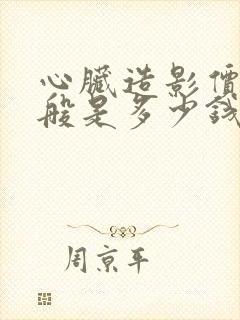 心臟造影價
般是多少錢
周京平